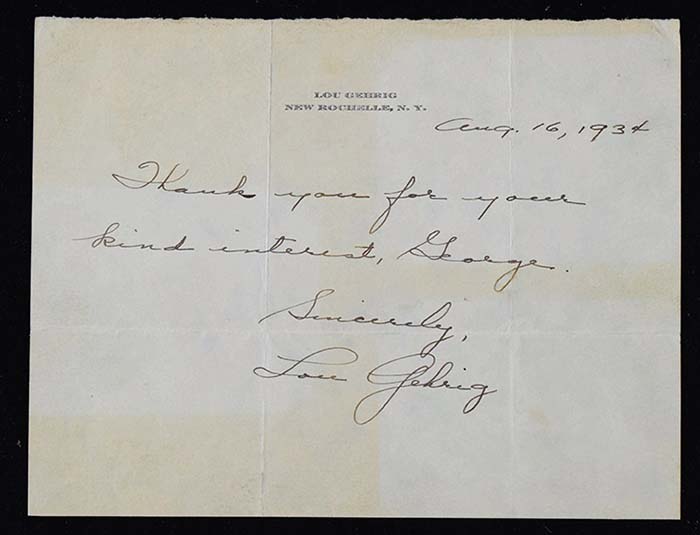 LOU GEHRIG
NEW ROCHELLE, N. Y.
Aug. 16, 1934
Thank you for your
kind interest, George.
Sincerely,
Lou Gehrig